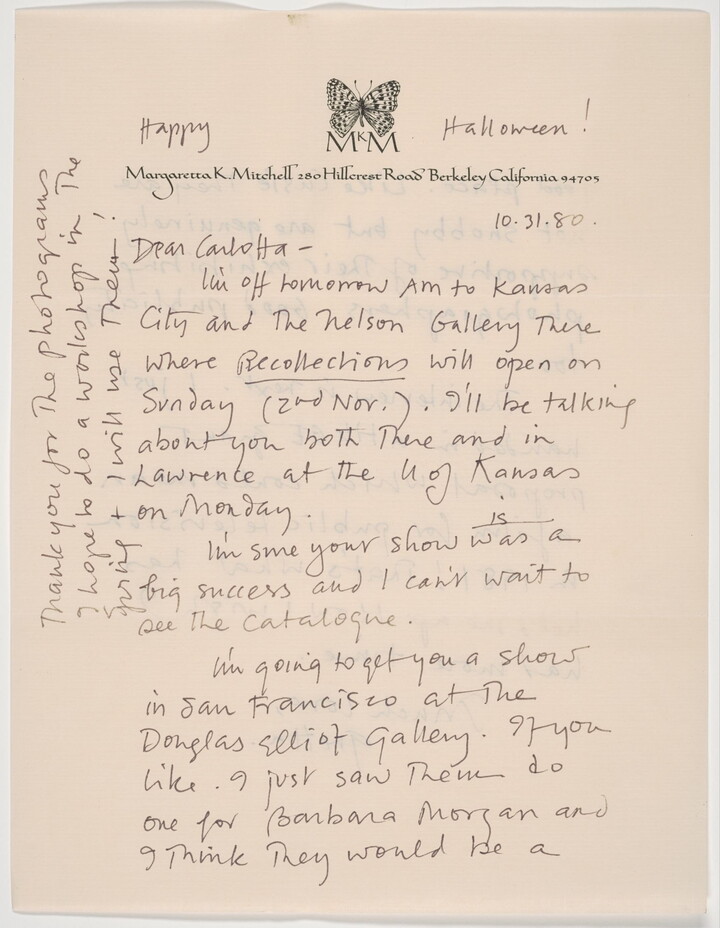 Happy Halloween!
MKM
Margaretta K. Mitchell 280 Hillcrest Road Berkeley California 94705
10.31.80.
Dear Carlotta –
I'm off tomorrow AM to Kansas
City and The Nelson Gallery There
where Recollections will open on
Sunday (2nd Nov.). I'll be talking
about you both There and in
Lawrence at the U of Kansas
on Monday.
I'm sure your show was is a
big success and I can't wait to
see the catalogue.
I'm going to get you a show
in San Francisco at The
Douglas Elliot Gallery. If you
like. I just saw Them do
one for Barbara Morgan and
I Think They would be a
Thank you for The photograms
I hope to do a workshop in The
Spring + I will use Them!